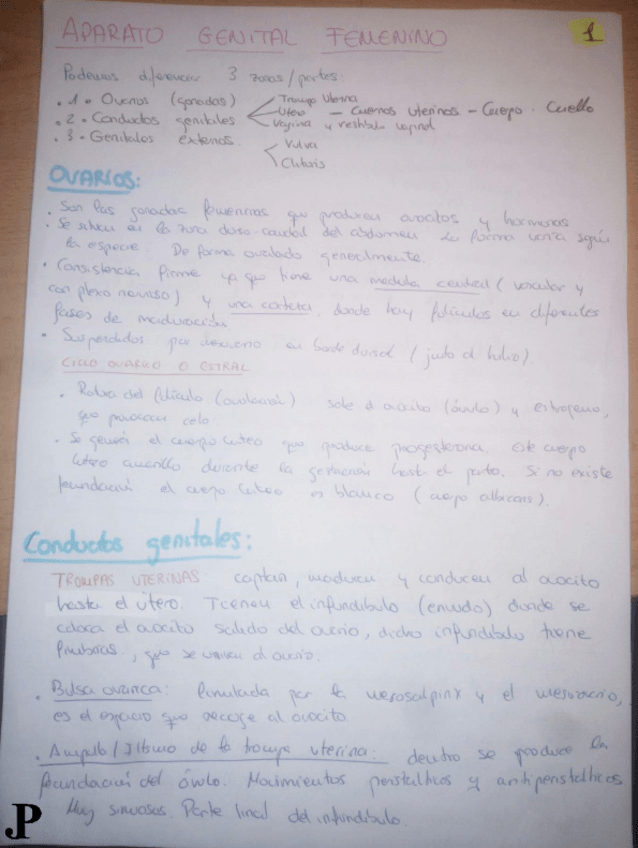 APARATO GENITAL FEMENINO
1
Podemos diferenciar 3 zonas/partes:
. 1 = Ovarios (gonadas)
. 2 = Conductos genitales
Trompa Uterina
Utero - Cuernos uterinos - Cuerpo - Cuello
Vagina y vestibulo vaginal
. 3 - Genitales externos.
Vulva
Clitoris
OVARIOS:
. Son las gonadas femeninas que producen ovocitos y hormonas
. Se situan en la zona dorso-caudal del abdomen La forma varia según
la especie. De forma ovalada generalmente.
. Consistencia firme ya que tiene una medula central (vascular y
con plexo nervioso) y una corteza, donde hay folículos en diferentes
fases de maduración
. Suspendidos por mesovario en borde dorsal (junto al hilio).
CICLO OVARICO O ESTRAL
. Rotura del folículo (ovulación) sale el ovocito (óvulo) y estrogeno,
que provocan celo.
. Se genera el cuerpo luteo que produce progesterona. Este cuerpo
luteo amarillo durante la gestación hasta el parto. Si no existe
fecundación el cuerpo luteo es blanco (cuerpo albicans).
Conductos genitales:
TROMPAS UTERINAS captan, maduran y conducen al ovocito
hasta el útero. Tienen el infundibulo (embudo) donde se
coloca el ovocito salido del ovario, dicho infundibulo tiene
fimbrias, que se unen al ovario.
. Bolsa ovarica: formada por la mesosalpinx y el mesovario,
es el espacio que recoge al ovocito
. Ampolla/Istmo de la trompa uterina: dentro se produce la
fecundación del óvulo. Movimientos peristalticos y antiperistalticos
Muy sinuosas. Parte final del infundibulo
JP